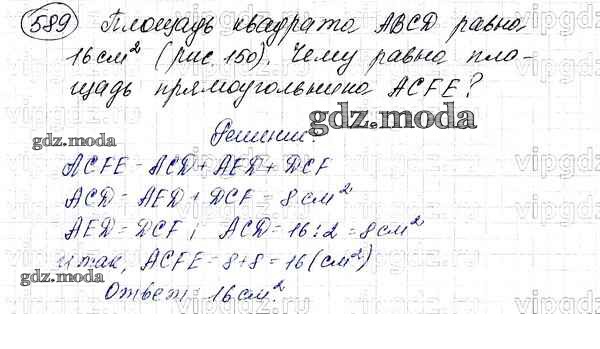 589 Площадь квадрата ABCD равна
16 см² (рис. 150). Чему равна пло-
щадь прямоугольника ACFE?
gdz.moda
gdz.moda
Решение:
ACFE = ACD + AED + DCF
ACD = AED + DCF = 8 см²
AED = DCF; ACD = 16 : 2 = 8 см²
итак, ACFE = 8 + 8 = 16 (см²)
gdz.moda
Ответ: 16 см².